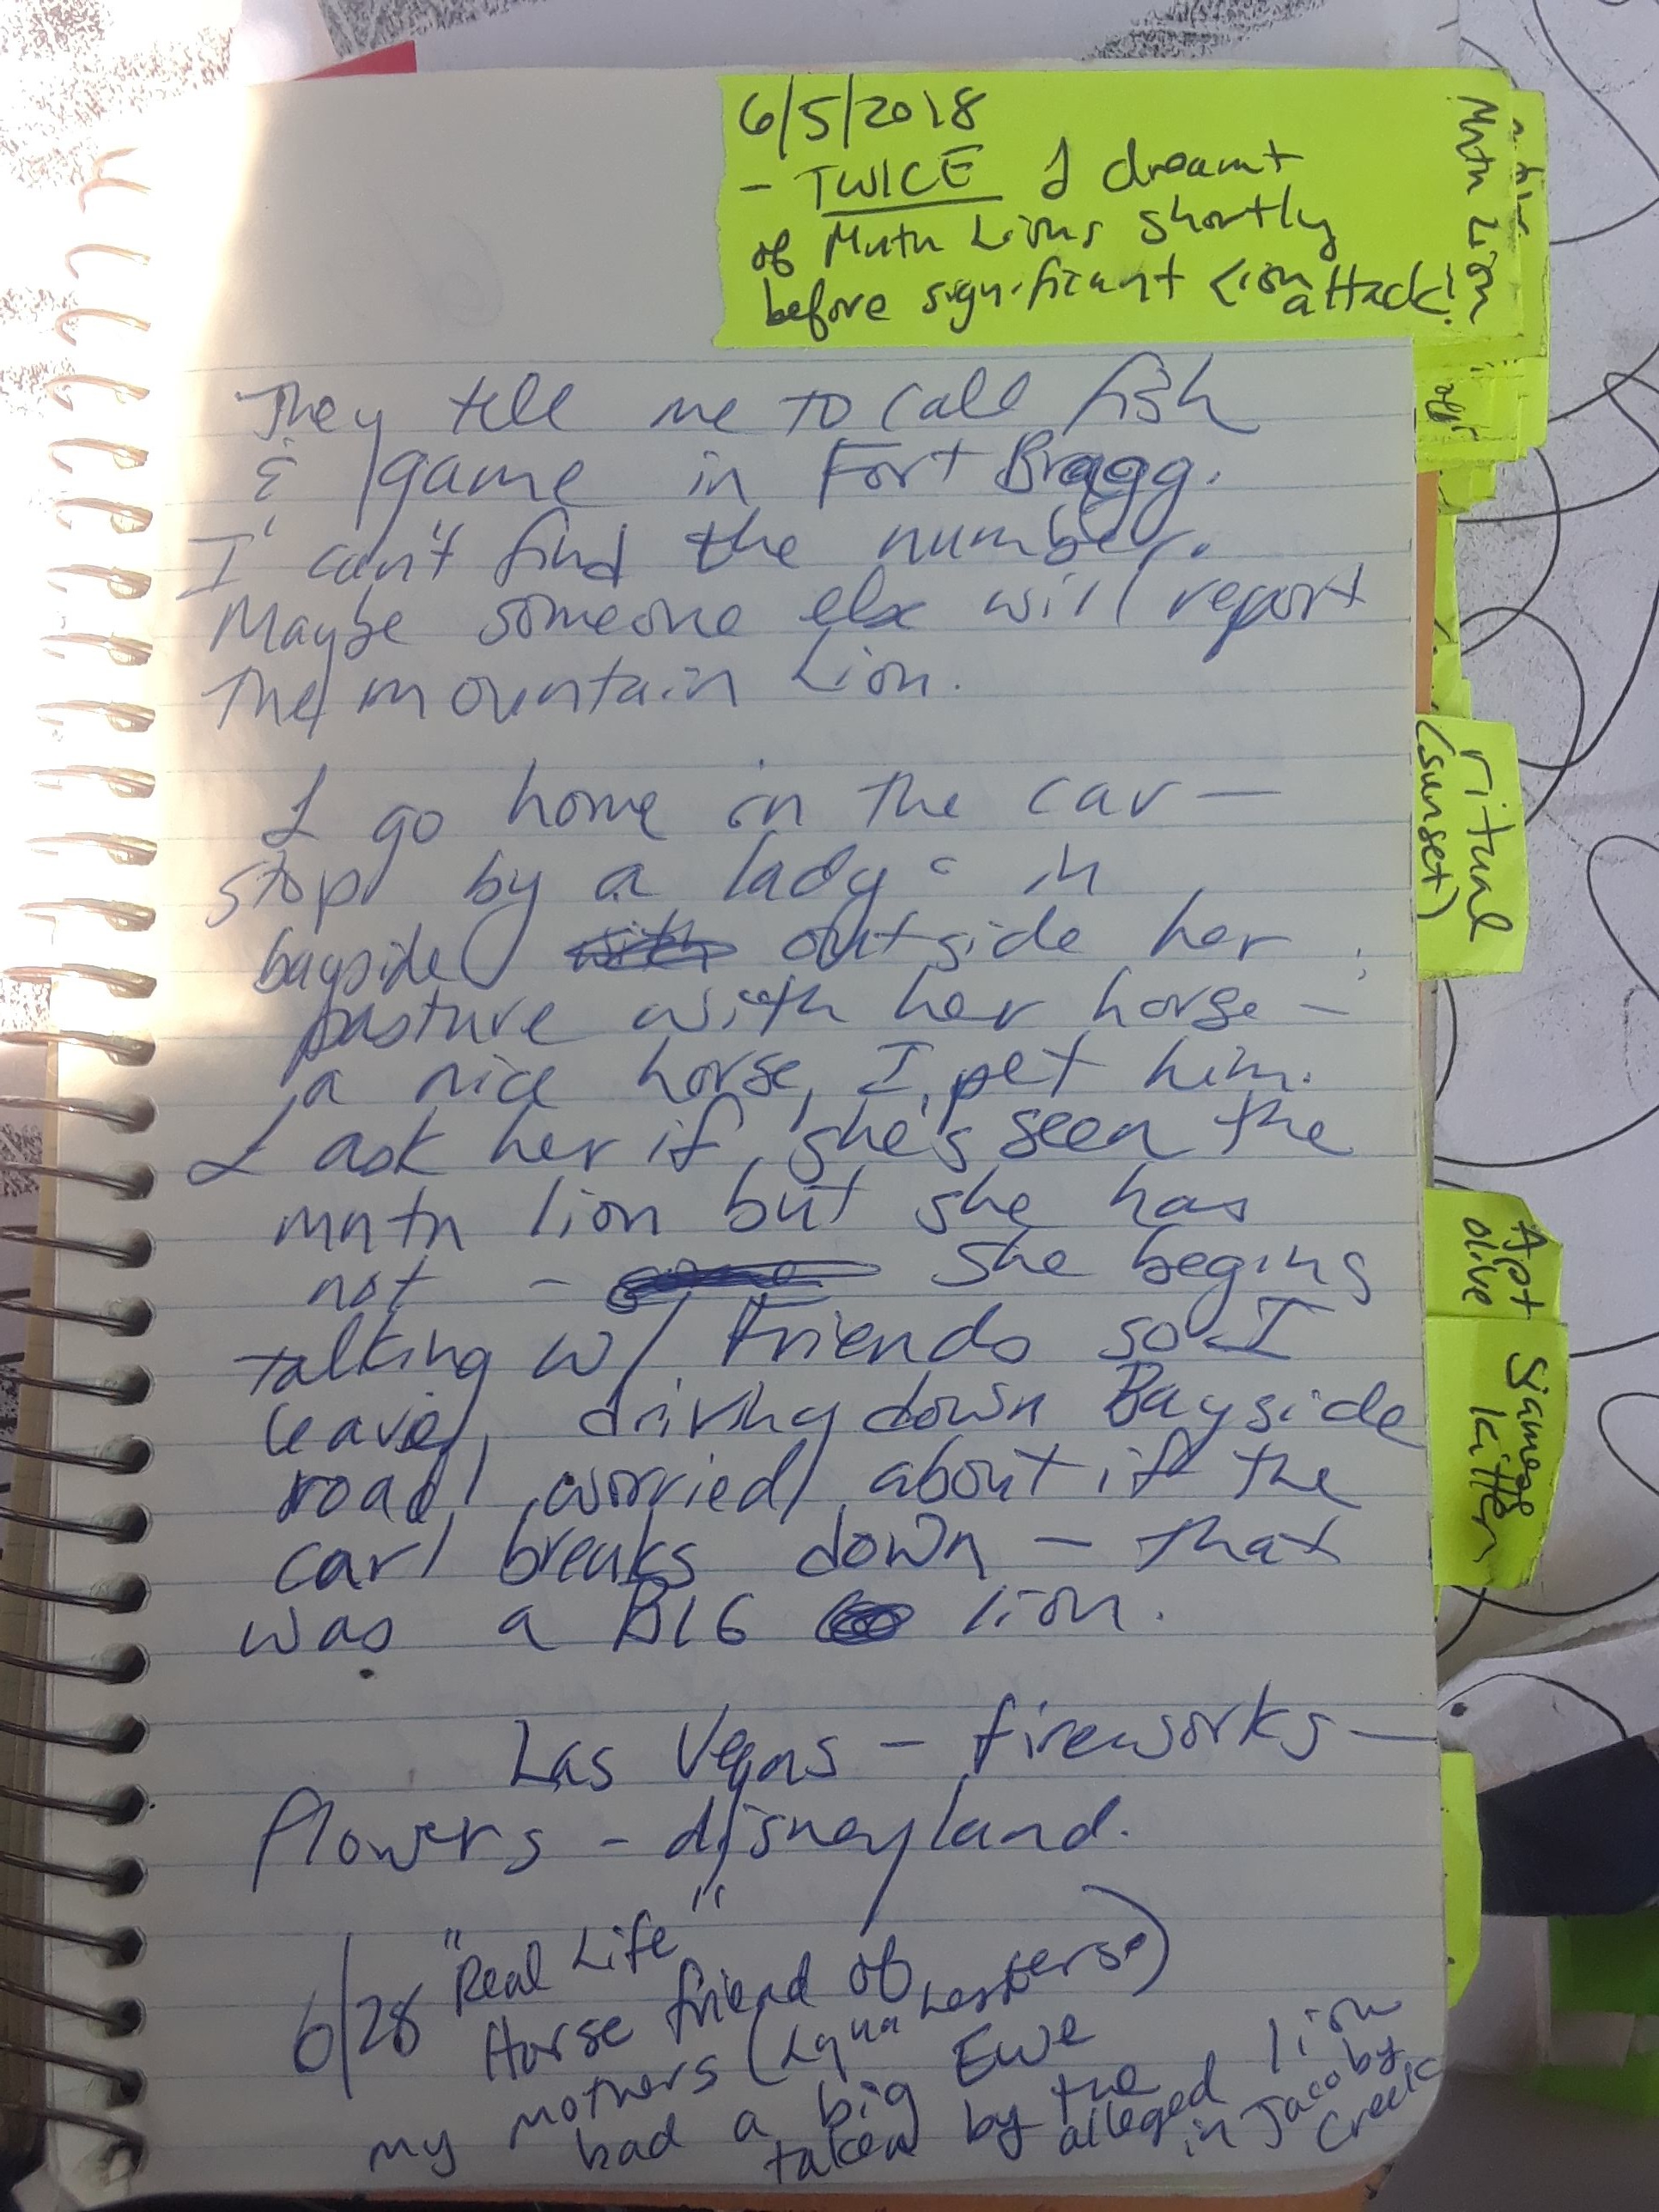 6/5/2018
- TWICE I dreamt
of Mntn Lions shortly
before significant Lion
attack!
Mntn Lion
They tell me to call fish
& game in Fort Bragg.
I can't find the number.
Maybe someone else will report
the mountain Lion.
I go home in the car —
stop by a lady in
bayside outside her
pasture with her horse —
a nice horse, I pet him.
I ask her if she's seen the
mntn lion but she has
not - she begins
talking w/ Friends so I
leave, driving down Bayside
road, worried about if the
car breaks down — that
was a BIG lion.
Las Vegas — fireworks —
flowers - disneyland.
6/28 "Real Life"
Horse friend of
my mothers
had a big Ewe
taken by the
alleged lion
in Jacoby
Creek
ritual
(sunset)
Apt
olive
Siamese
kitten